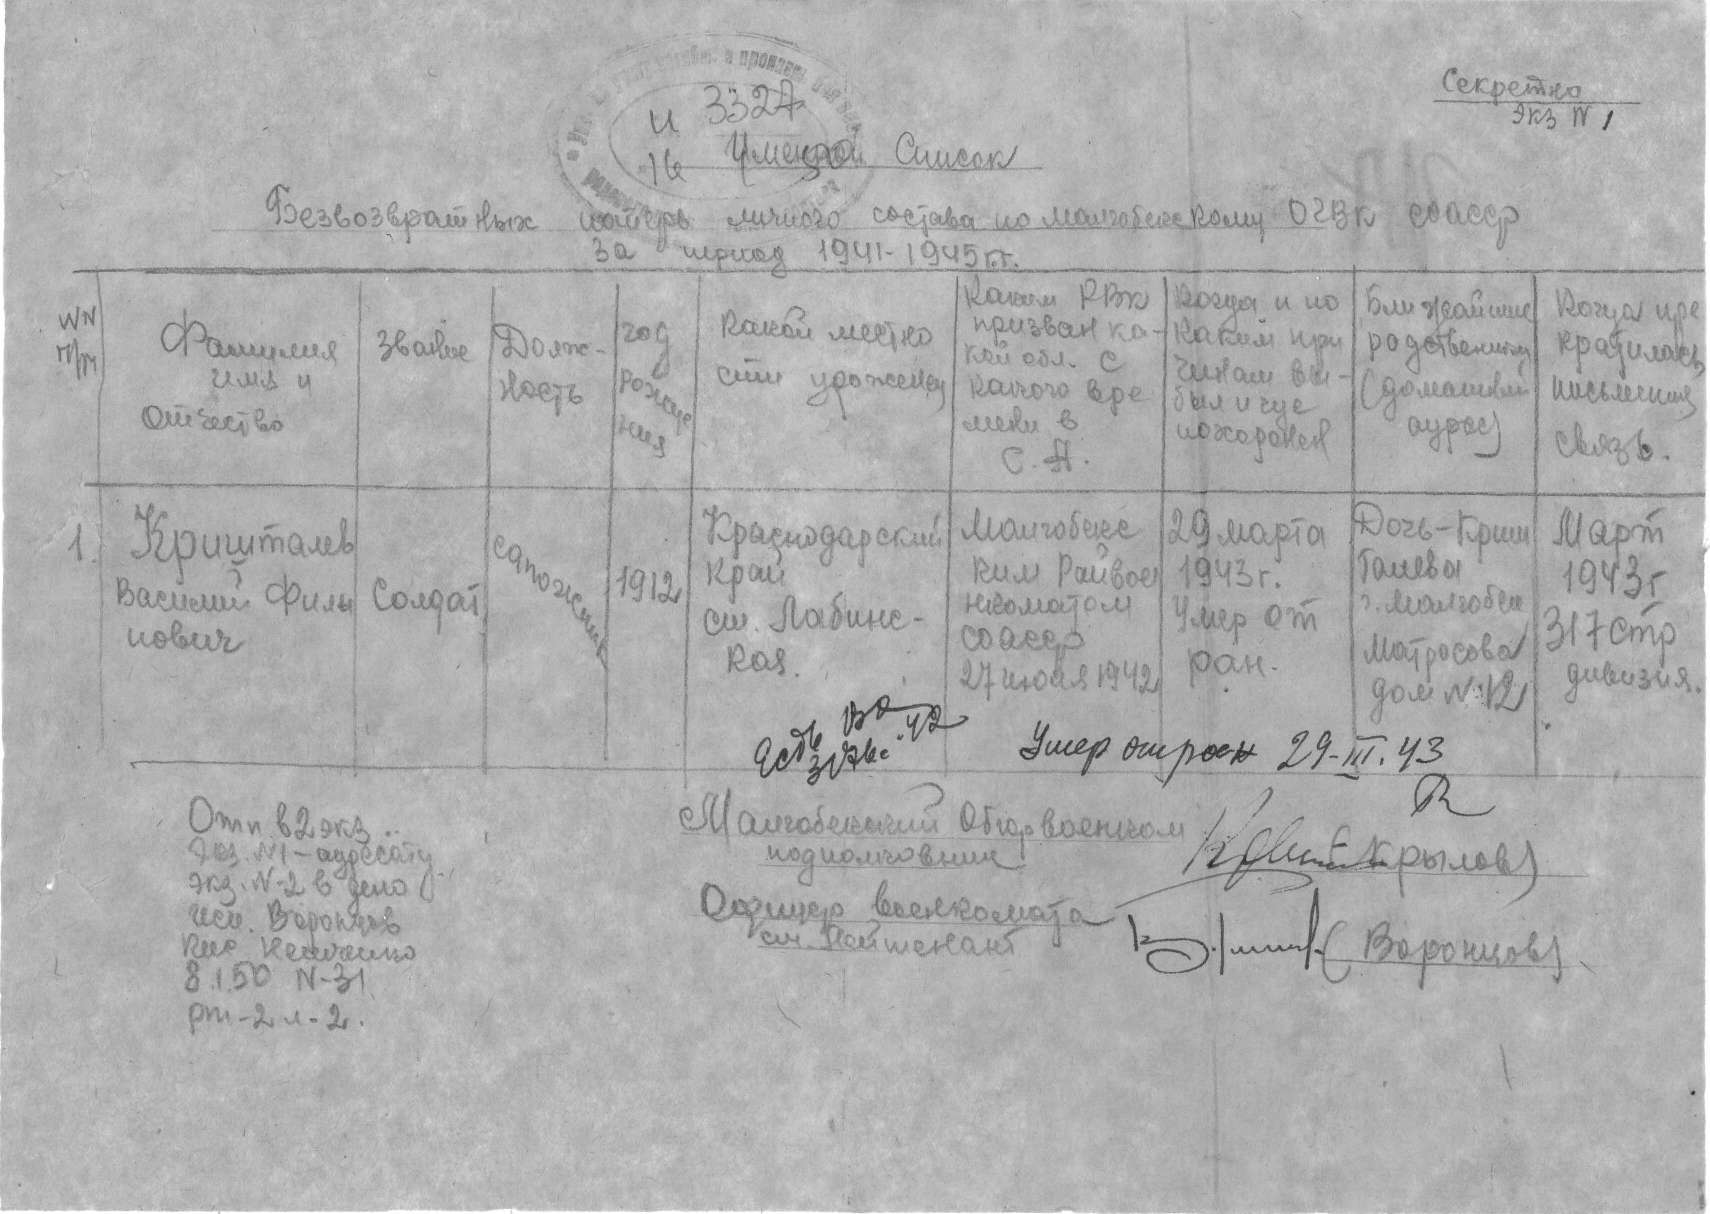 Секретно
Экз N 1
и 3327
16 30
Именной Список
Безвозвратных потерь личного состава по Малгобекскому ОГВК СОАССР
За период 1941-1945 г.г.
NN
п/п
Фамилия
имя и
отчество
Звание
Долж-
ность
год
рожде
ния
Какой местно
сти уроженец
Каким РВК
призван ка-
кой обл. С
какого вре
мени в
С.А.
Когда и по
каким при
чинам вы-
был и где
похоронен
Ближайшие
родственники
(домашний
адрес)
Когда пре
кратилась
письменная
связь.
1.
Кришталев
Василий Филип
пович
Солдат
сапожник
1912
Краснодарский
край
ст. Лабинс-
кая.
Малгобекс
ким Райвоен
коматом
СОАССР
27 июля 1942
29 марта
1943 г.
Умер от
ран.
Дочь-Криш
талева
г. Малгобек
Матросова
дом N 12
Март
1943 г
317 стр
дивизия.
Есть
Умер от ран 29-III.43
Отп. в 2 экз.
Экз. N1-адресату
экз. N-2 в дело
исп. Воронцов
8.1.50 N-31
рт-2 л-2.
Малгобекский Обгорвоенком
подполковник
(Крылов)
Офицер военкомата
ст. Лейтенант
(Воронцов)